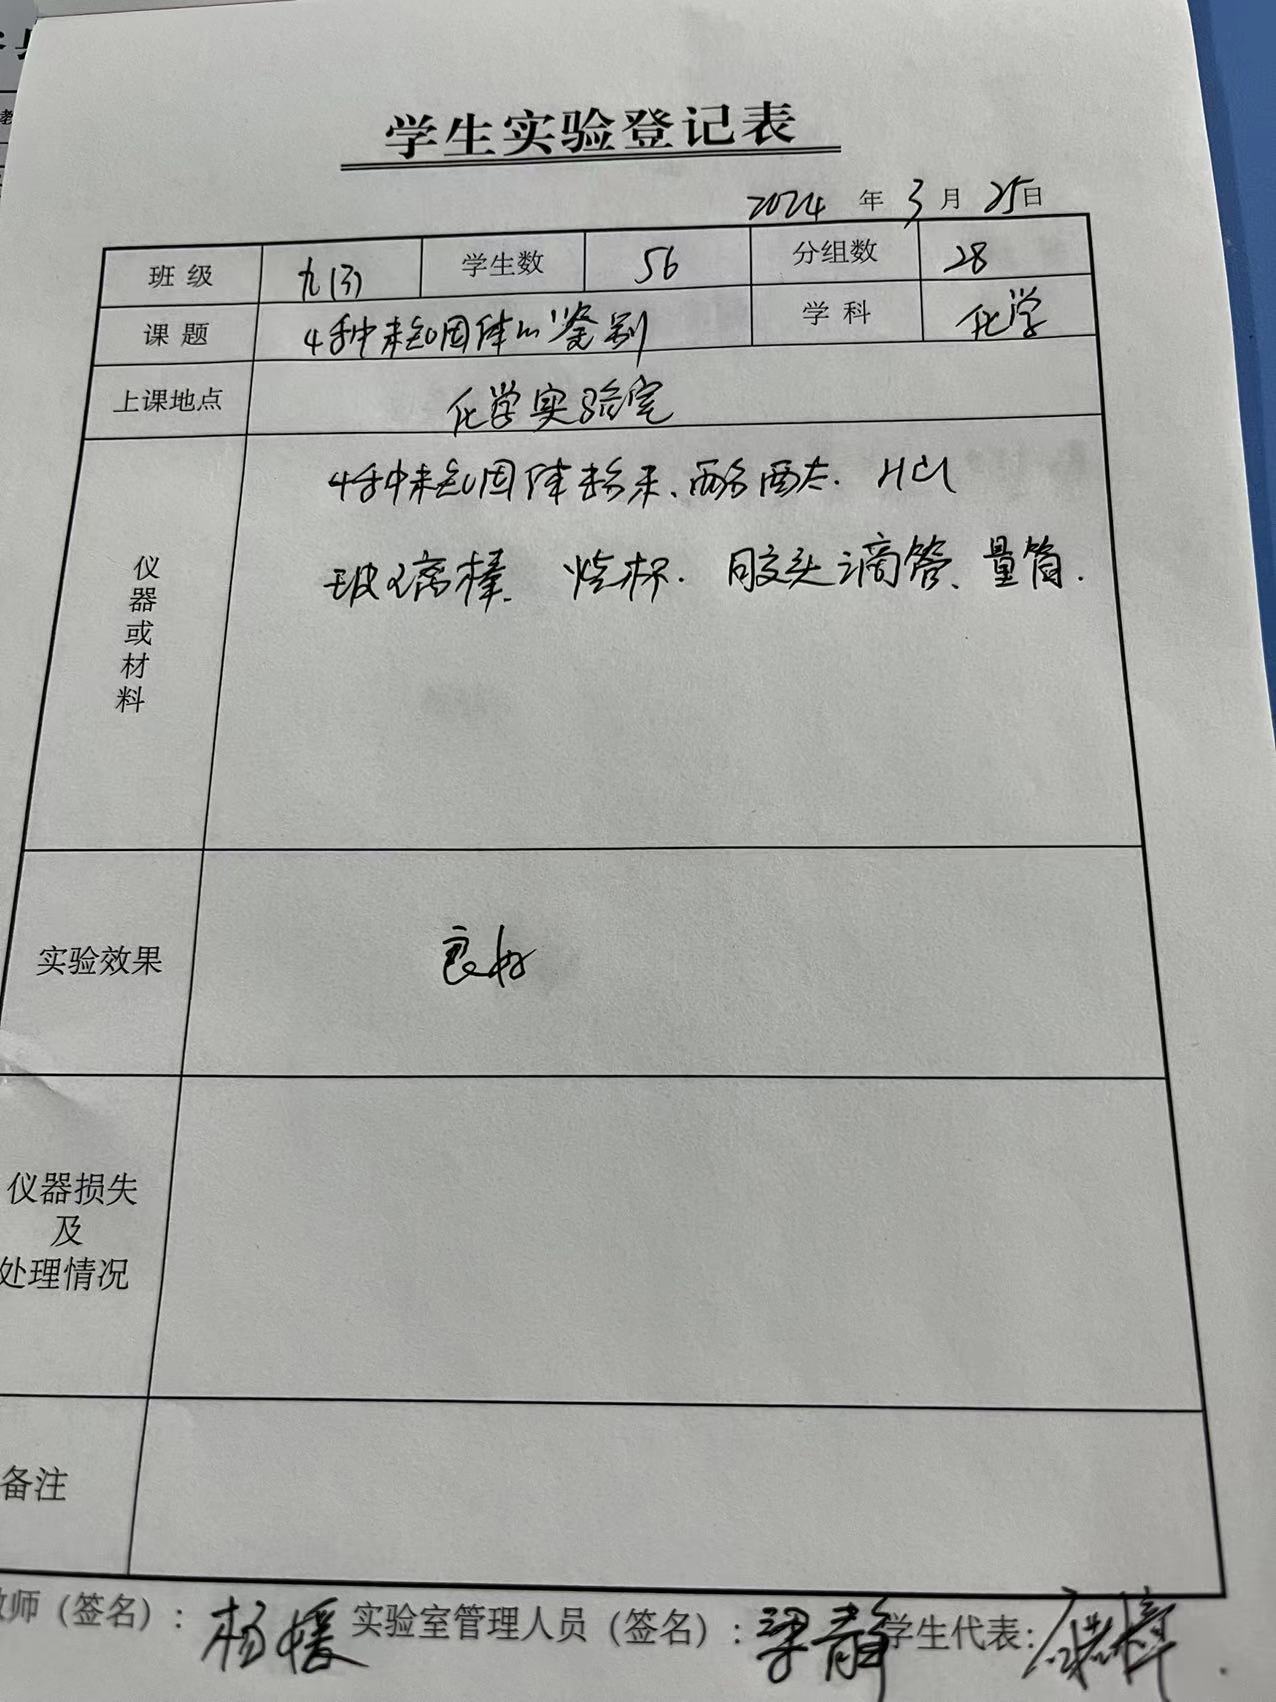 学生实验登记表
2024 年 3 月 25日
班 级 九(3) 学生数 56 分组数 28
课 题 4种未知固体的鉴别 学 科 化学
上课地点 化学实验室
仪器或材料
4种未知固体粉末、酚酞. HCl
玻璃棒、烧杯. 胶头滴管、量筒.
实验效果 良好
仪器损失
及
处理情况
备注
教师（签名）: 杨媛 实验室管理人员（签名）: 梁静 学生代表: